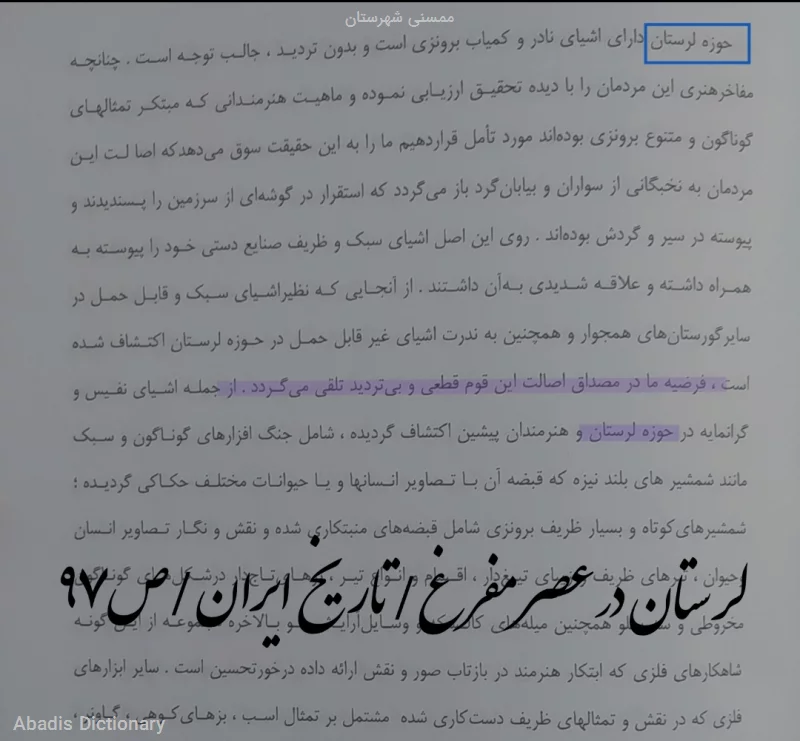 ممسنی شهرستان
حوزه لرستان دارای اشیای نادر و کمیاب برونزی است و بدون تردید ، جالب توجه است . چنانچه
مفاخرهنری این مردمان را با دیده تحقیق ارزیابی نموده و ماهیت هنرمندانی که مبتکر تمثالهای
گوناگون و متنوع برونزی بوده‌اند مورد تأمل قراردهیم ما را به این حقیقت سوق می‌دهدکه اصا لت این
مردمان به نخبگانی از سواران و بیابان‌گرد باز می‌گردد که استقرار در گوشه‌ای از سرزمین را پسندیدند و
پیوسته در سیر و گردش بوده‌اند . روی این اصل اشیای سبک و ظریف صنایع دستی خود را پیوسته به
همراه داشته و علاقه شدیدی به‌آن داشتند . از آنجایی که نظیراشیای سبک و قابل حمل در
سایرگورستان‌های همجوار و همچنین به ندرت اشیای غیر قابل حمل در حوزه لرستان اکتشاف شده
است ، فرضیه ما در مصداق اصالت این قوم قطعی و بی‌تردید تلقی می‌گردد . از جمله اشیای نفیس و
گرانمایه در حوزه لرستان و هنرمندان پیشین اکتشاف گردیده ، شامل جنگ افزارهای گوناگون و سبک
مانند شمشیر های بلند نیزه که قبضه آن با تصاویر انسانها و یا حیوانات مختلف حکاکی گردیده ؛
شمشیرهای کوتاه و بسیار ظریف برونزی شامل قبضه‌های منبتکاری شده و نقش و نگار تصاویر انسان
وحیوان ، تبرهای ظریف و تیغ‌دار ، اقسام و انواع تیر ، تاج‌دار درشکل‌های گوناگون
لرستان در عصر مفرغ / تاریخ ایران / ص ۹۷
مخروطی و همچنین میله‌های و وسایل و بالاخره مجموعه از این گونه
شاهکارهای فلزی که ابتکار هنرمند در بازتاب صور و نقش ارائه داده درخورتحسین است . سایر ابزارهای
فلزی که در نقش و تمثالهای ظریف دست‌کاری شده مشتمل بر تمثال اسب ، بزهای‌کوهی ، گاونر ،
Abadis Dictionary